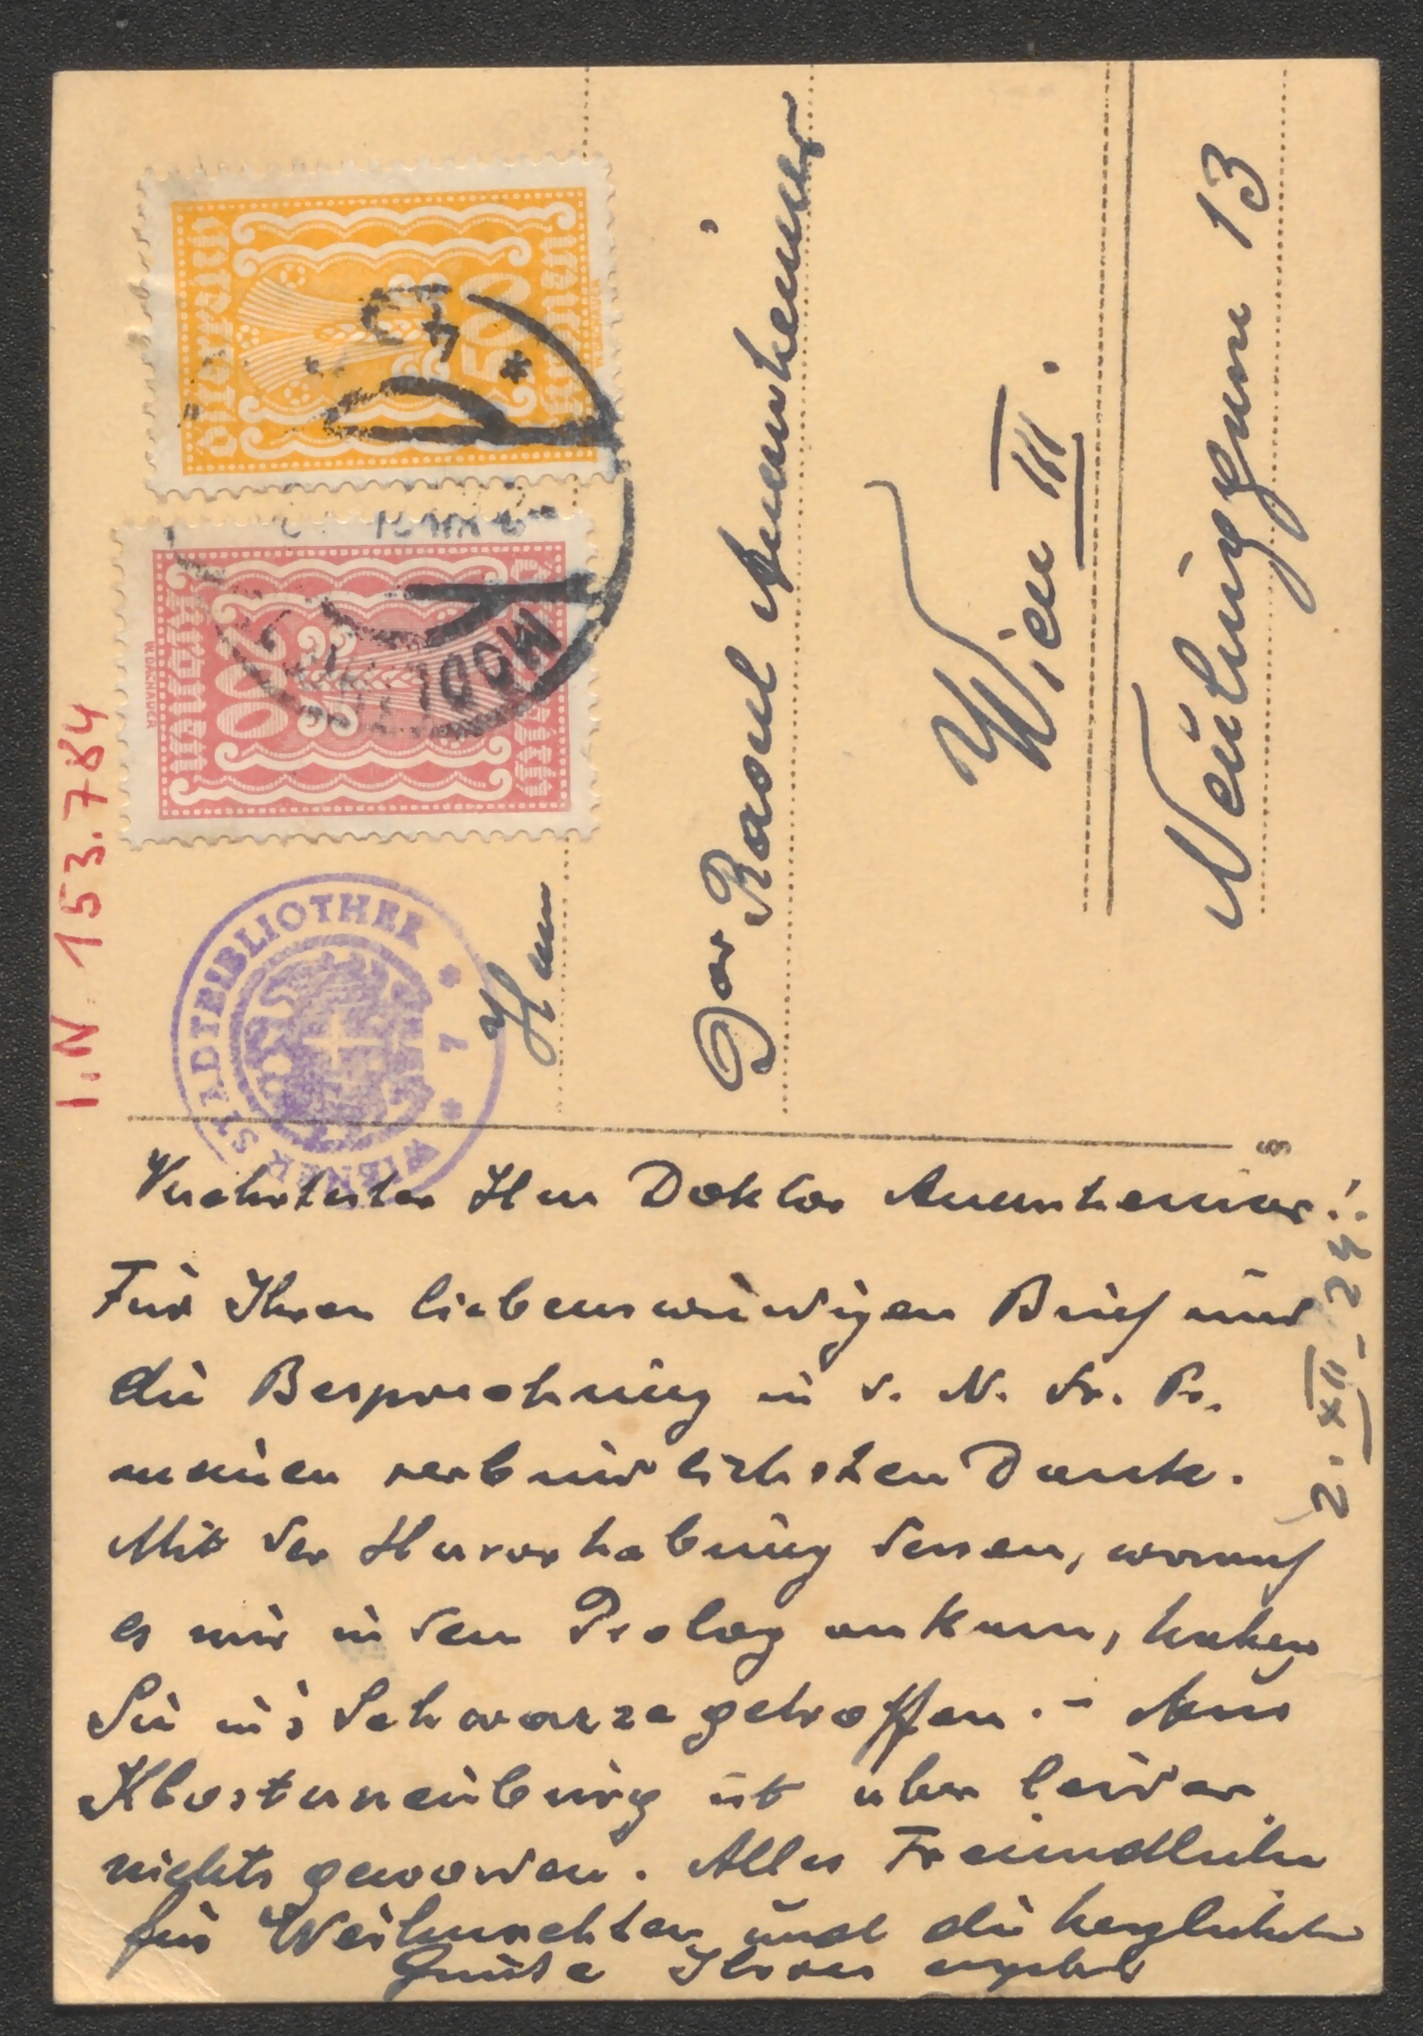 I.N. 153.784
Österreich
500
Kronen
Österreich
200
Kronen
W. DACHAUER
MÖDL
WIENER STADTBIBLIOTHEK * 7 *
Herrn
Dor Raoul Auernheimer
Wien III.
Neulinggasse 13
Verehrtester Herr Doktor Auernheimer!
2. XII. 24.
Für Ihren liebenswürdigen Brief und
die Besprechung in d. N. Fr. Pr.
meinen verbindlichsten Dank.
Mit der Hervorhebung dessen, worauf
es mir in dem Prolog ankam, haben
Sie in's Schwarze getroffen. – Aus
Klosterneuburg ist aber leider
nichts geworden. Alles Freundliche
für Weihnachten und die herzlichsten
Grüße Ihres ergeb